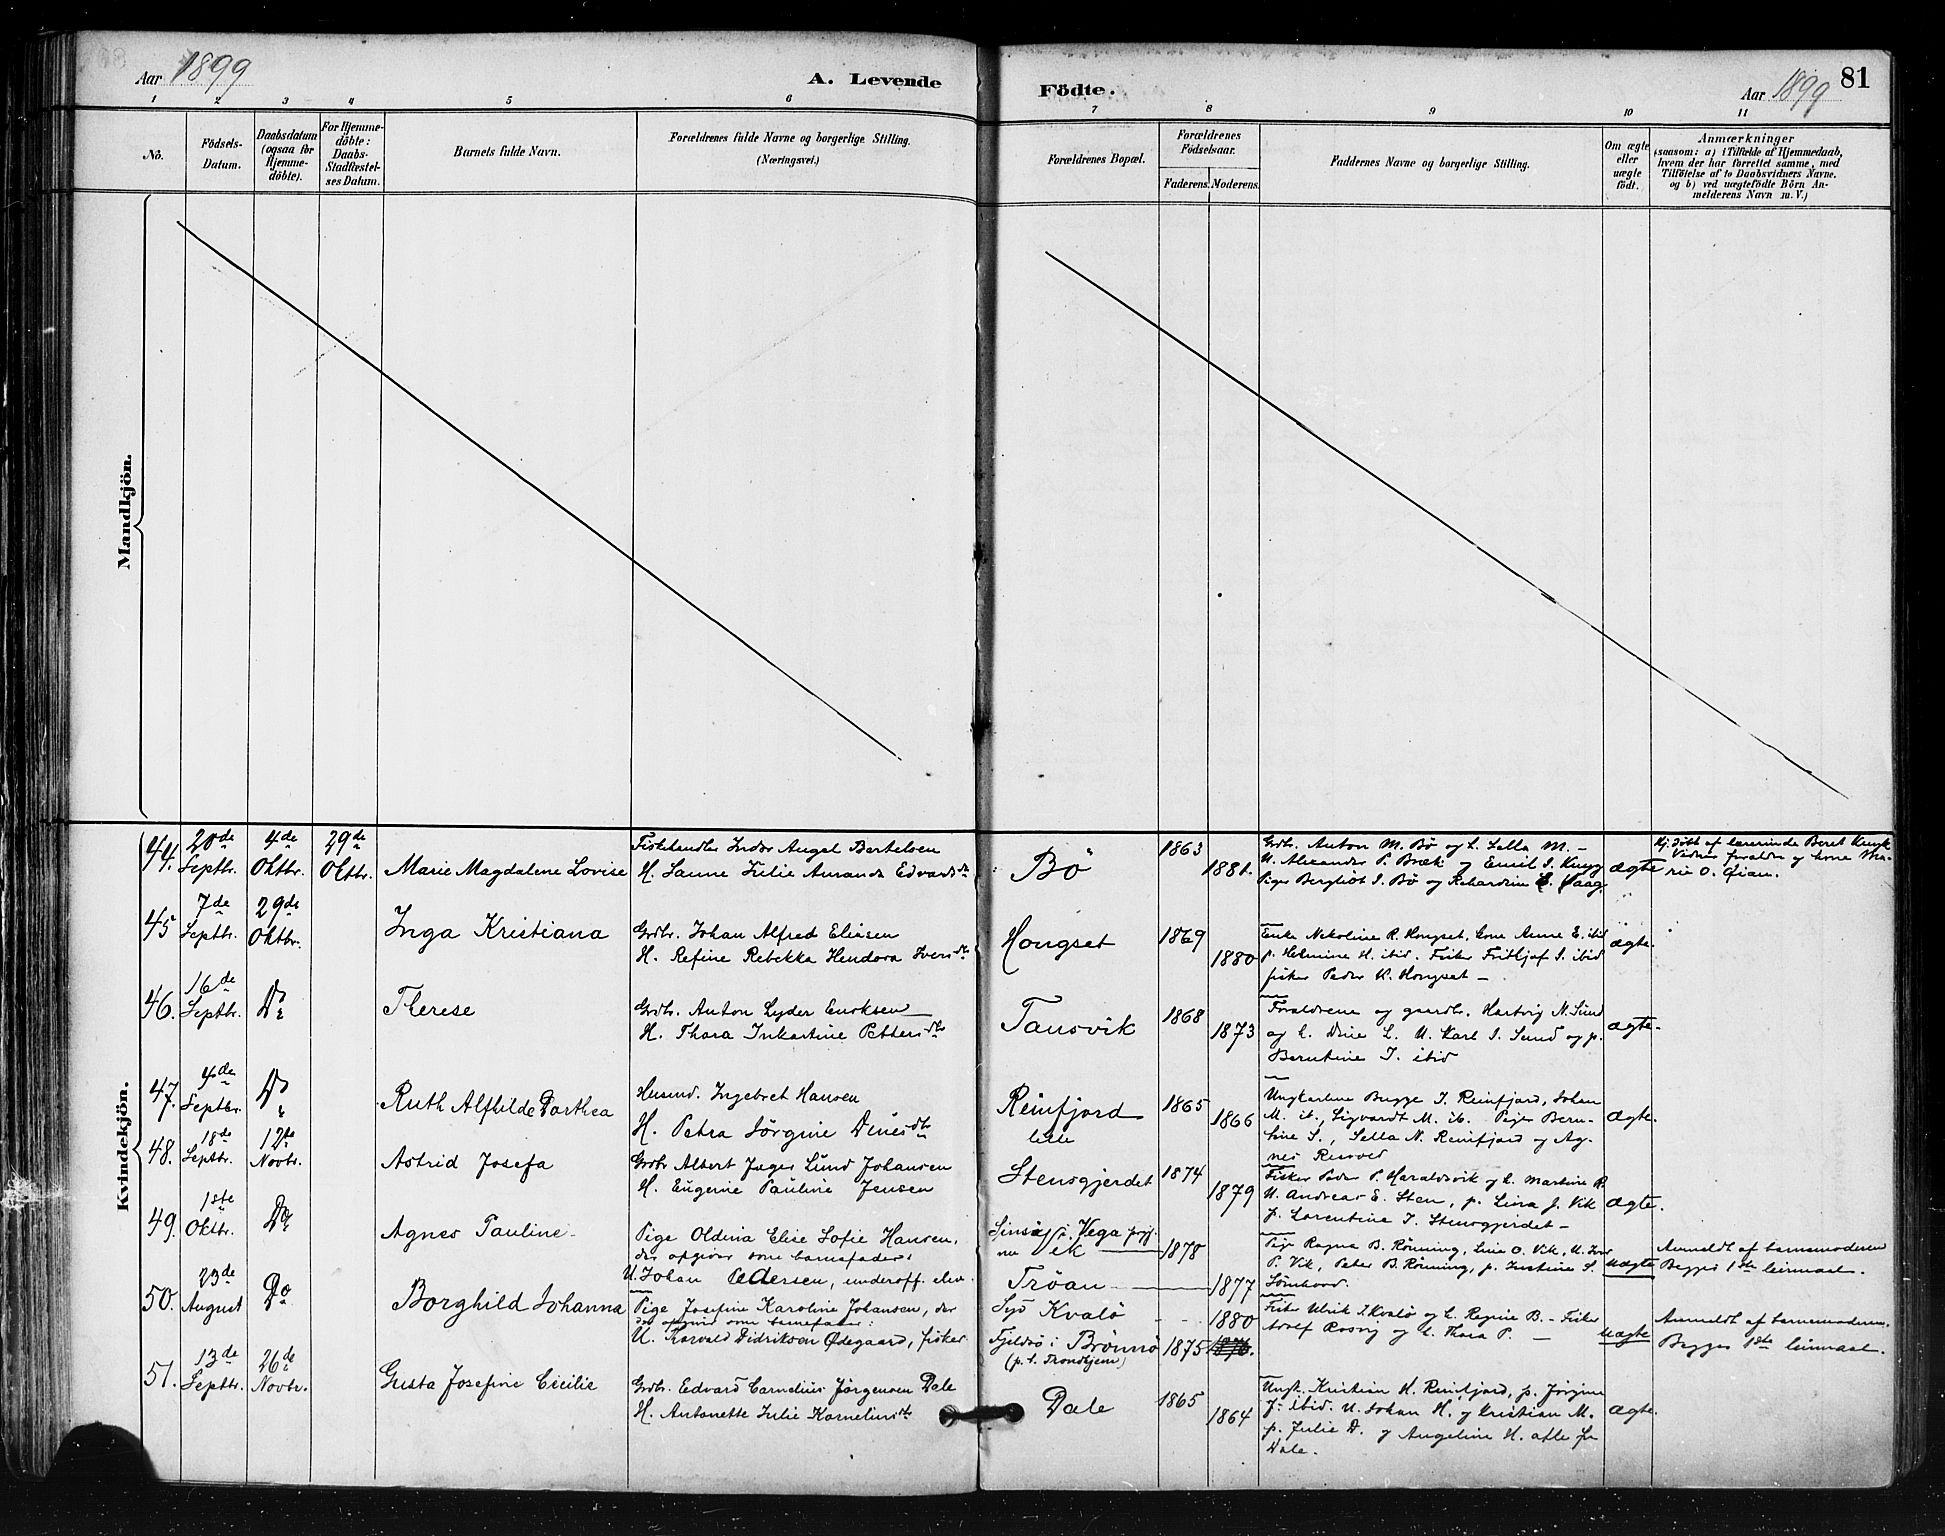 Aar 1899
A. Levende
Födte.
Aar 1899
81
1 2 3 4 5 6 7 8 9 10 11
No.
Födsels-
Datum.
Daabsdatum
(ogsaa for
Hjemme-
döbte).
For Hjemme-
döbte:
Daabs-
Stadfæstel-
ses Datum.
Barnets fulde Navn.
Forældrenes fulde Navne og borgerlige Stilling.
(Næringsvei.)
Forældrenes Bopæl.
Forældrenes
Födselsaar.
Faderens. Moderens.
Faddernes Navne og borgerlige Stilling.
Om ægte
eller
uægte
födt.
Anmærkninger
(saasom: a) i Tilfælde af Hjemmedaab,
hvem der har forrettet samme, med
Tilföielse af to Daabsvidners Navne.
og b) ved uægtefödte Börn An-
melderens Navn m. V.)
Mandkjön.
Kvindekjön.
44. 20de Septbr. 4de Oktbr. 29de Oktbr.
Marie Magdalene Lovise
Fiskehandler Indor August Bertelsen
H. Sanne Julie Amanda Edvardsdtr
Bö
1863
1881.
Grdbr. Anton M. Bø og h. Sella M. –
U. Alexander P. Bræk og Emil I. Krigg
Piger Bergliot I. Bø og
ægte
Hj. døbt af lærerinde Beret
Vidner forældre og kone Ma-
rie O.
45 7de Septbr. 29de Oktbr.
Inga Kristiana
Grdbr. Johan Alfred Eliasen
H. Refine Rebekka Hendora Iversdtr
Hongset
1869
1880
Enke Nikoline R. Hongset, kone Anne E. ibid
p. Helmine H. ibid. Fisker Fridtjof I. ibid
fisker Peder K. Hongset –
ægte.
46. 16de Septbr. Do
Therese
Grdbr. Anton Lyder Enoksen
H. Thora Inkartine Pettersdtr
Tansvik
1868
1873
Forældrene og gaardbr. Hartvig N. Lund
og h. Dine L. U. Karl I. Lund og p.
Berntine I. ibid
ægte.
47. 4de Septbr. Do
Ruth Alfhilde Dorthea
Husmd. Ingebret Hansen
H. Petra Jørgine Dinesdtr
Reinfjord
lille
1865
1866
Ungkarlene Bugge I. Reinfjord, Johan
M. ib., Sigvardt M. ib. Piger Bern-
tine I., Sella N. Reinfjord og Ag-
nes
ægte.
48. 18de Septbr. 12te Novbr.
Astrid Josefa
Grdbr Albert Jæger Lund Johansen
H. Eugenie Pauline Jensen
Stensgjerdet
1874
1879
Fisker Peder P. Haraldsvik og h. Martine R.
U. Andreas E. Sten, p. Lina J. Vik
p. Lorentine I. Stensgjerdet –
ægte.
49. 1ste Oktbr. Do
Agnes Pauline
Pige Oldina Elise Sofie Hansen,
der opgiver som barnefader:
U. Johan Pedersen, underoff. elev.
i Vega
nu Vik
Tröan
1878
1877
Pige Ragna B. Rönning, Lina O. Vik, U. Ivar
P. Vik, Peter B. Rönning, p. Justine S.
Sömhovd.
uægte
Anmeldt af barnemoderen
Begges 1ste leiermaal.
50. 23de August Do
Borghild Johanna
Pige Josefine Karoline Johansen, der
opgiver som barnefader:
U. Torvald Didriksen Ødegaard, fisker
Syd Kvalö
Fjeldsö i Brönnö
(p. t. Trondhjem)
1880
1875 1876.
Fisker Ulrik I. Kvalö og h. Regine B. – Fisker
Adolf Rosvig og h. Thora P. –
uægte
Anmeldt af barnemoderen.
Begges 1ste leiermaal.
51. 13de Septbr. 26de Novbr.
Gusta Josefine Cecilie
Grdbr. Edvard Cornelius Jørgensen Dale
H. Antonette Julie Korneliusdtr
Dale
1865
1864
Ungk. Kristian H. Reinfjord, p. Jørgine
J. ibid. U. Johan H. og Kristian M.
p. Julie D. og Angeline H. alle fra
Dale.
ægte.